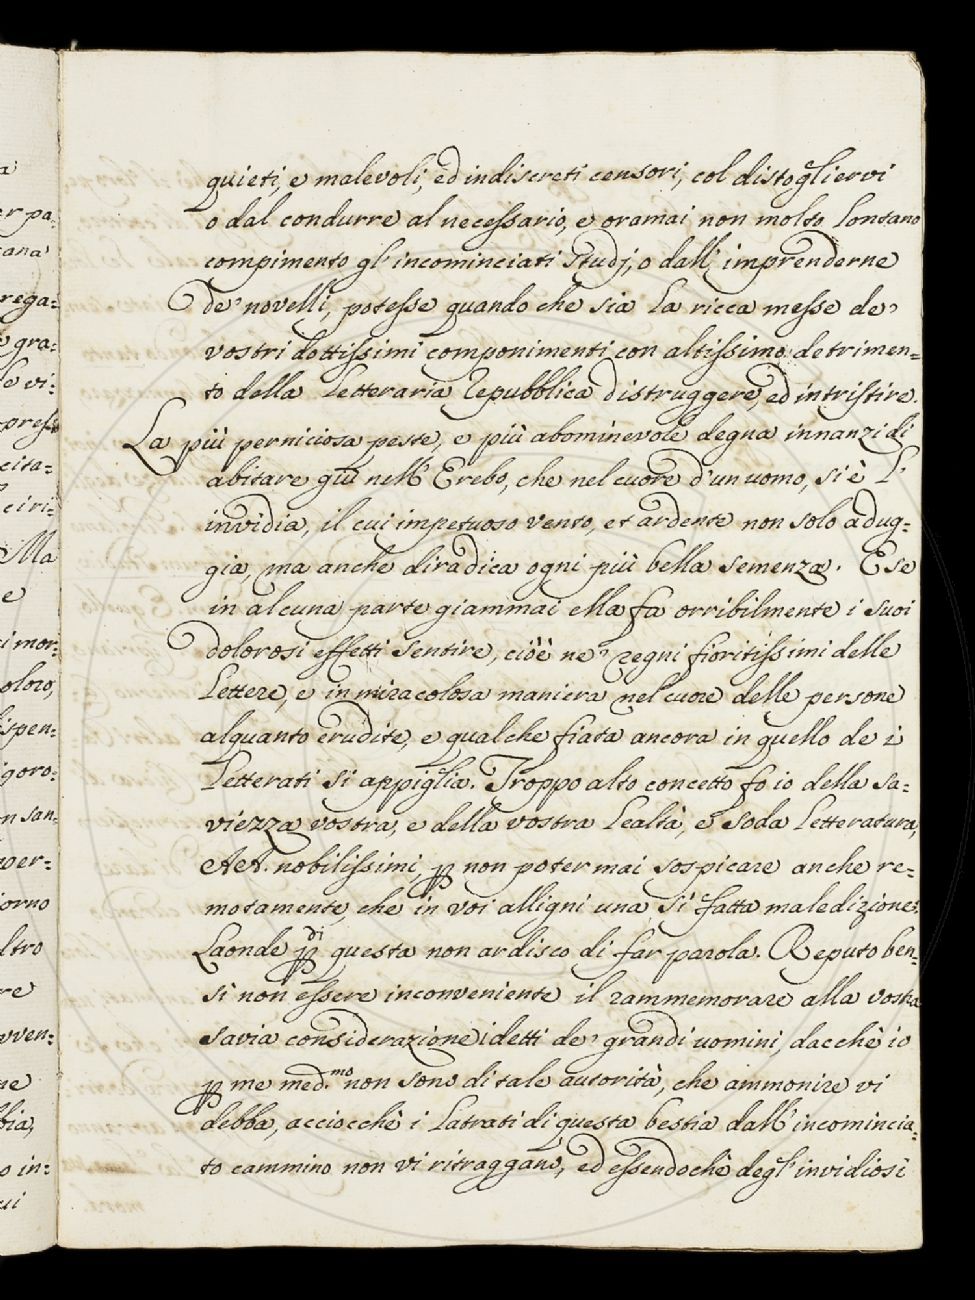 quieti, e malevoli, ed indiscreti censori, col distogliervi
o dal condurre al necessario, e oramai non molto lontano
compimento gl' incominciati studj, o dall' imprenderne
de' novelli, potesse quando che sia la ricca messe de'
vostri dottissimi componimenti con altissimo detrimen=
to della letteraria Repubblica distruggere, ed intristire.
La più perniciosa peste, e più abominevole degna innanzi di
abitare giù nell' Erebo, che nel cuore d'un uomo, si è l'
invidia, il cui impetuoso vento, et ardente non solo adug=
gia, ma anche diradica ogni più bella semenza. E se
in alcuna parte giammai ella fa orribilmente i suoi
dolorosi effetti sentire, cioè ne' regni fioritissimi delle
Lettere, e in miracolosa maniera nel cuore delle persone
alquanto erudite, e qualche fiata ancora in quello de i
Letterati si appiglia. Troppo alto concetto fo io della sa=
viezza vostra, e della vostra lealtà, e soda letteratura,
AA. nobilissimi, p non poter mai sospicare anche re=
motamente, che in voi alligni una si fatta maledizione.
Laonde p di questa non ardisco di far parola. Reputo ben=
sì non essere inconveniente il rammemorare alla vostra
savia considerazione i detti de' grandi uomini, dacchè io
p me med.mo non sono di tale autorità, che ammonire vi
debba, acciocchè i latrati di questa bestia dall' incomincia=
to cammino non vi ritraggano, ed essendochè degl' invidiosi
a
er pa=
cana
rega=
e gra=
le vi=
press
cita=
ciri=
Ma
e
i mor=
oloro,
ispen=
igoro=
n san=
per=
orno
ltro
re
vven=
ne
bia,
o in=